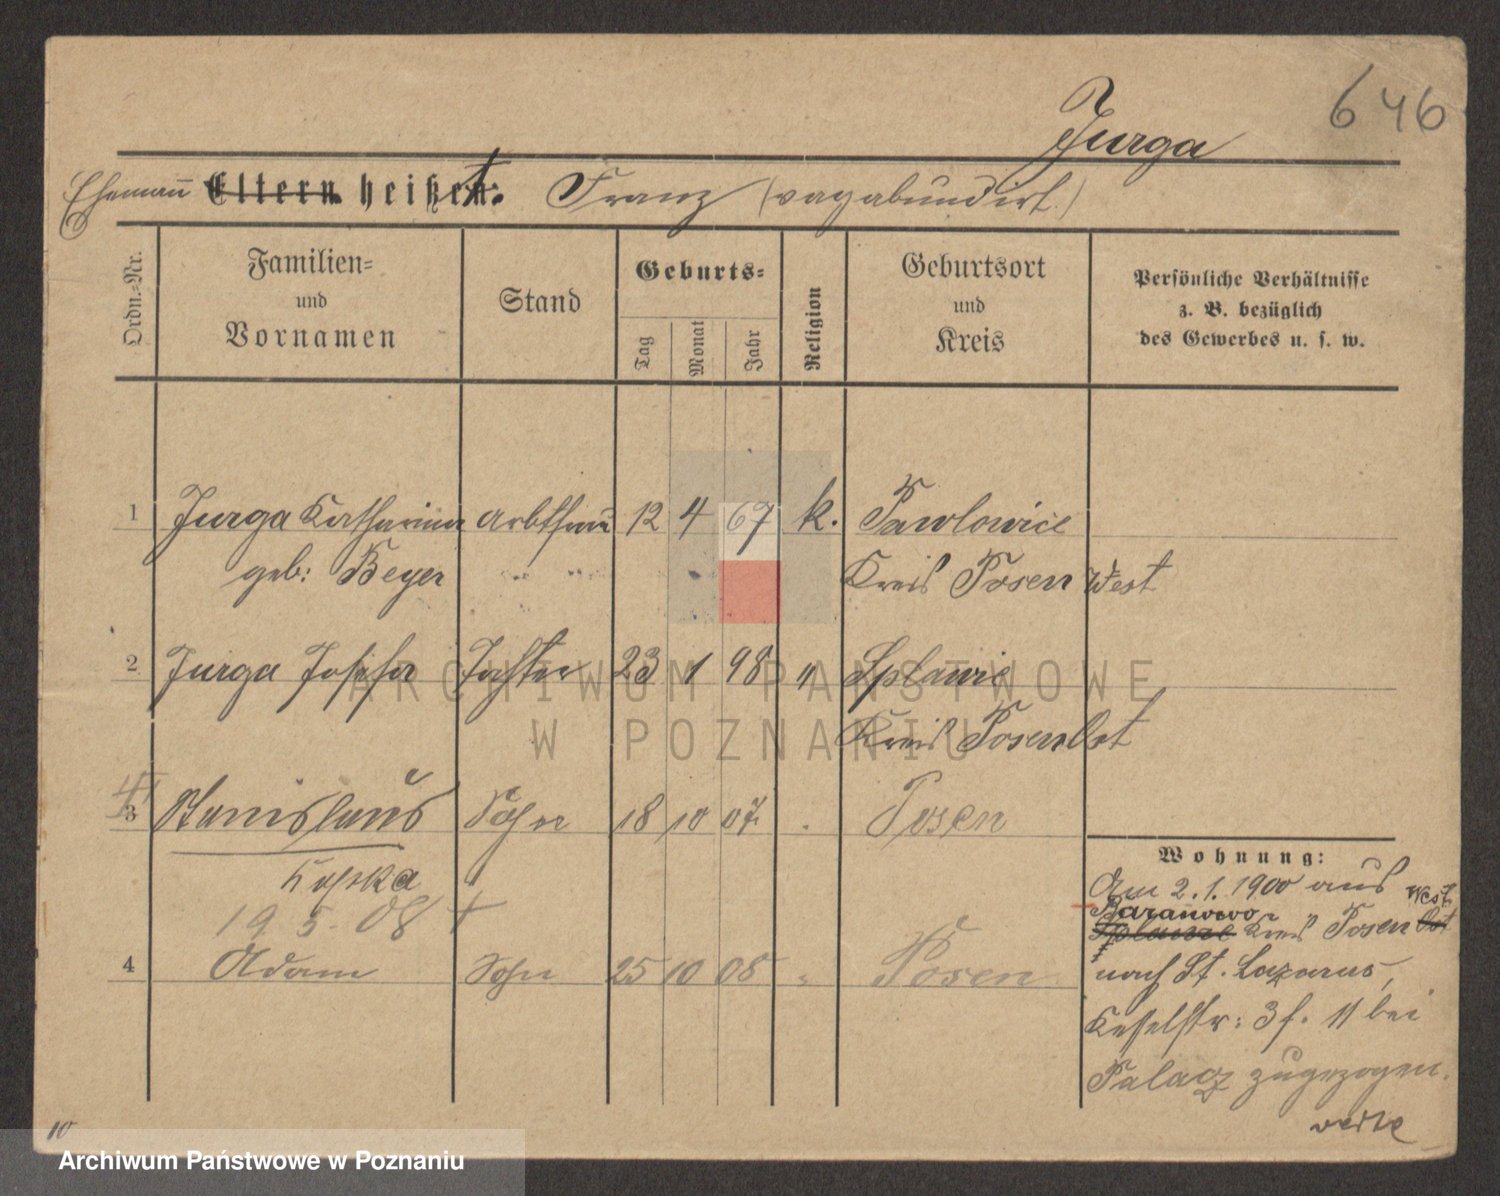 646
Jurga
Ehemann Eltern heißen: t. Franz (vagabundirt.)
Ordn.-Nr.
Familien-
und
Vornamen
Stand
Geburts-
Tag
Monat
Jahr
Religion
Geburtsort
und
Kreis
Persönliche Verhältnisse
z. B. bezüglich
des Gewerbes u. s. w.
1 Jurga Katharina Arbtfrau 12 4 67 k. Pawlowice
geb: Beyer Kreis Posen West
2 Jurga Josefa Tochter 23 1 98 " Splawie
Kreis Posen Ost
3 Stanislaus Sohn 18 10 07 Posen
Kostka
19 5. 08 †
4 Adam Sohn 25 10 08 Posen
Wohnung:
Am 2.1.1900 aus
Baranowo West
Splawie Kreis Posen Ost
nach St. Lazarus,
Kesselstr: 3 f. 11 bei
Palacz zugezogen.
10
ARCHIWUM PAŃSTWOWE
W POZNANIU
Archiwum Państwowe w Poznaniu